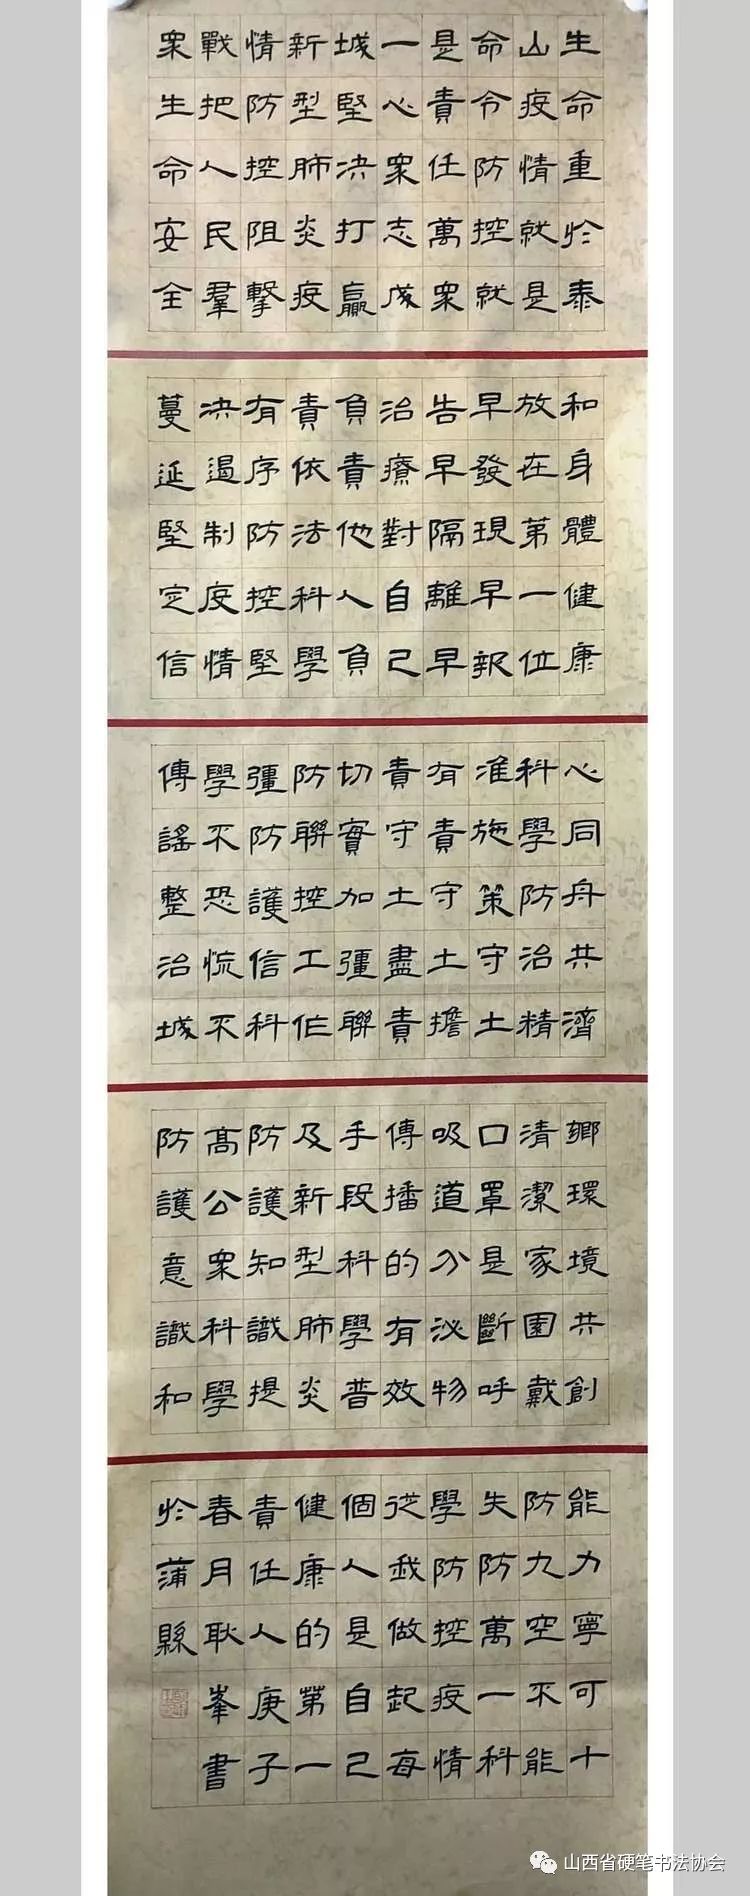 生命重於泰
山疫情就是
命令防控就
是責任萬眾
一心眾志成
城堅決打贏
新型肺炎疫
情防控阻擊
戰把人民羣
眾生命安全
和身體健康
放在第一位
早發現早報
告早隔離早
治療對自己
負責他人負
責依法科學
有序防控堅
決遏制疫情
蔓延堅定信
心同舟共濟
科學防治精
准施策守土
有責守土擔
責守土盡責
切實加彊聯
防聯控工作
彊防護信科
學不恐慌不
傳謠整治城
鄉環境共創
清潔家園戴
口罩是斷呼
吸道分泌物
傳播的有效
手段科學普
及新型肺炎
防護知識提
高公眾科學
防護意識和
能力寧可十
防九空不能
失防萬一科
學防控疫情
從我做起每
個人是自己
健康的第一
責任人庚子
春月耿峯書
於蒲縣
山西省硬笔书法协会